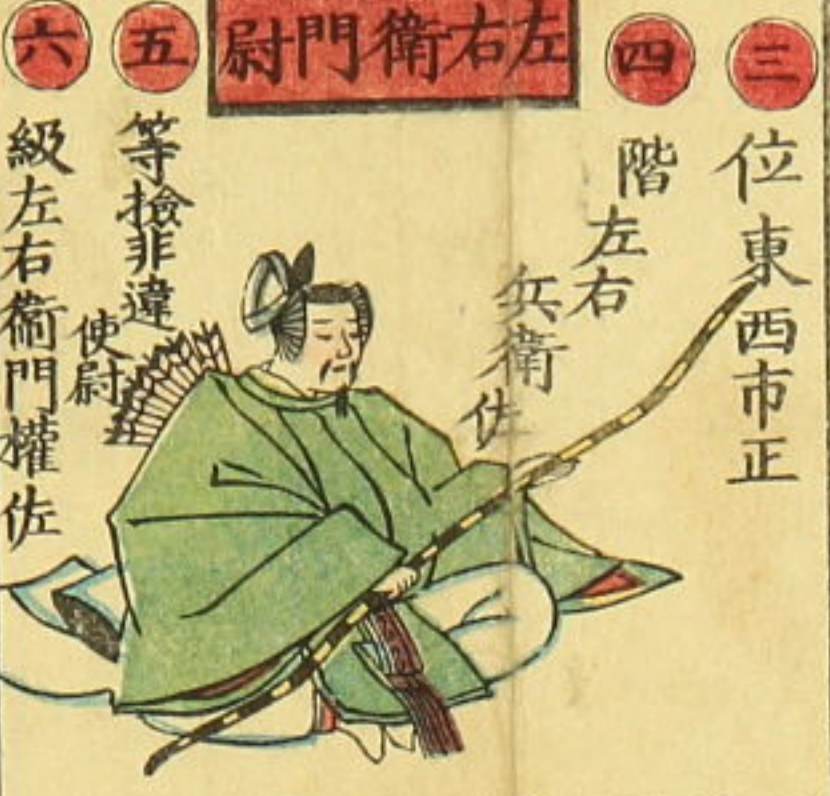 左右衛門尉
三
位東西市正
四
階左右
兵衛佐
五
等撿非違
使尉
六
級左右衛門權佐